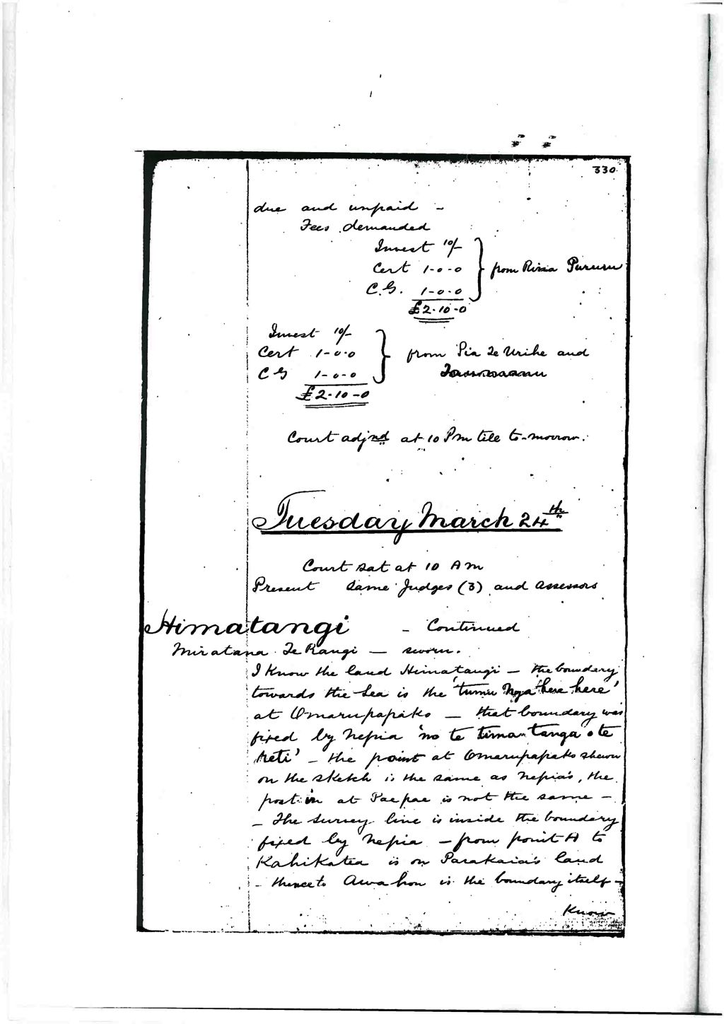 330
due and unpaid —
Fees demanded
Invest 10/-
Cert 1-0-0 } from Rima Pururu
C.G. 1-0-0
£2-10-0
Invest 10/-
Cert 1-0-0 } from Pia Te Urihe and
C G 1-0-0
£2-10-0
Court adjnd at 10 Pm till to-morrow.
Tuesday March 24th
Court sat at 10 Am
Present same Judges (3) and assessors
Himatangi — Continued
Miratana Te Rangi — sworn.
I Know the land Himatangi — the boundary
towards the Sea is the 'tumu Nga here here'
at Omarupapako — that boundary was
fixed by Nepia 'no te timatanga o te
Reti' — the point at Omarupapako shewn
on the sketch is the same as Nepia's, the
post in at Paepae is not the same —
— The survey line is inside the boundary
fixed by Nepia — from point A to
Kahikatea is on Parakaia's land
— thence to Awahou is the boundary itself —
Know